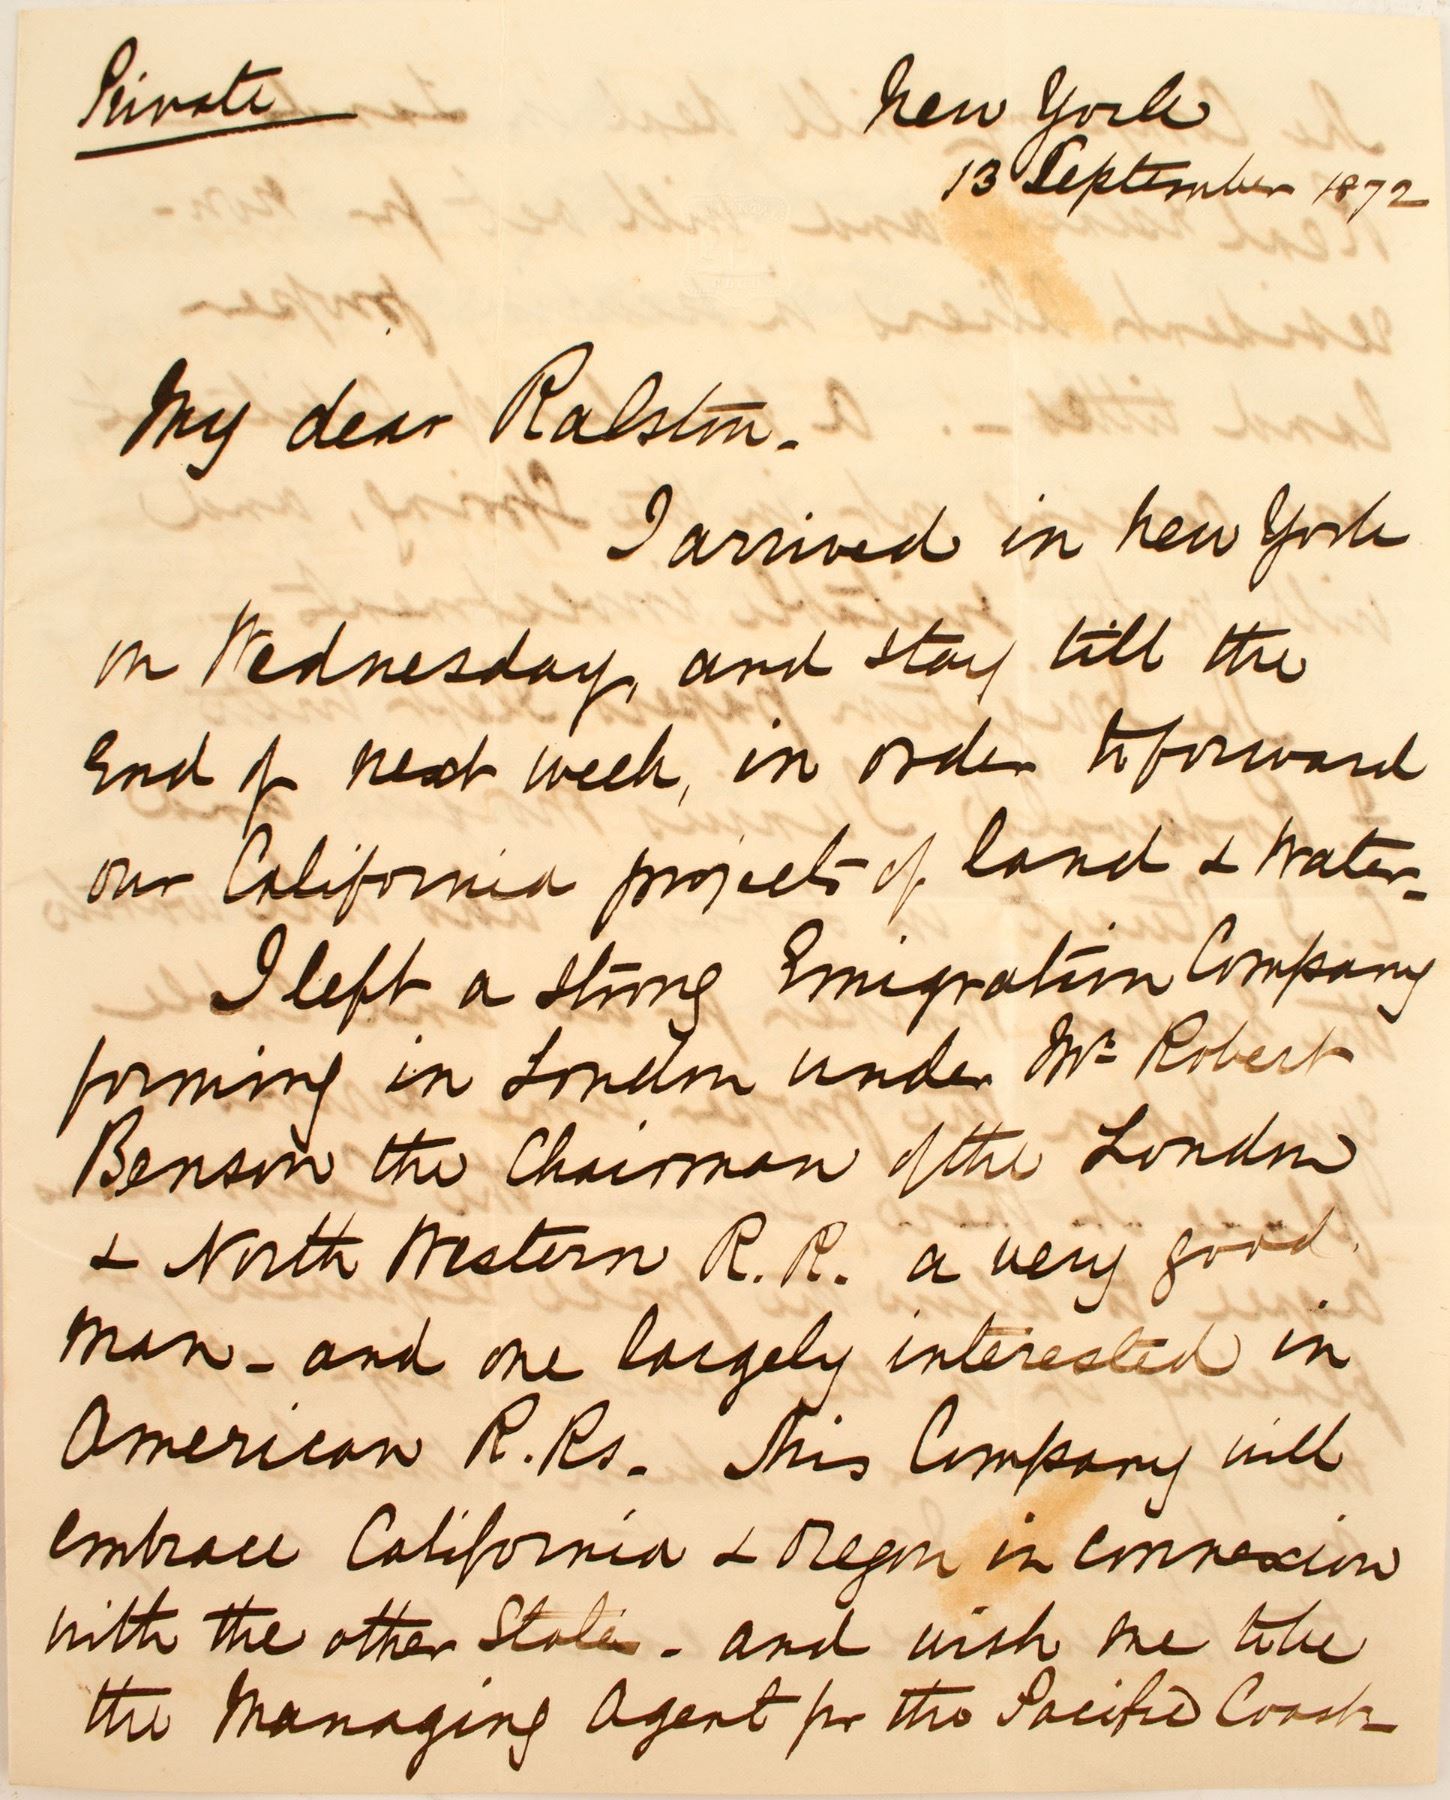 Private
New York
13 September 1872
My dear Ralston -
I arrived in New York
on Wednesday, and stay till the
End of next week, in order to forward
our California projects of land & Water -
I left a strong Emigration Company
forming in London under Mr Robert
Benson the Chairman of the London
& North Western R.R. a very good
man - and one largely interested in
American R.Rs. This Company will
embrace California & Oregon in connexion
with the other States - and wish me to be
the Managing Agent for the Pacific Coast